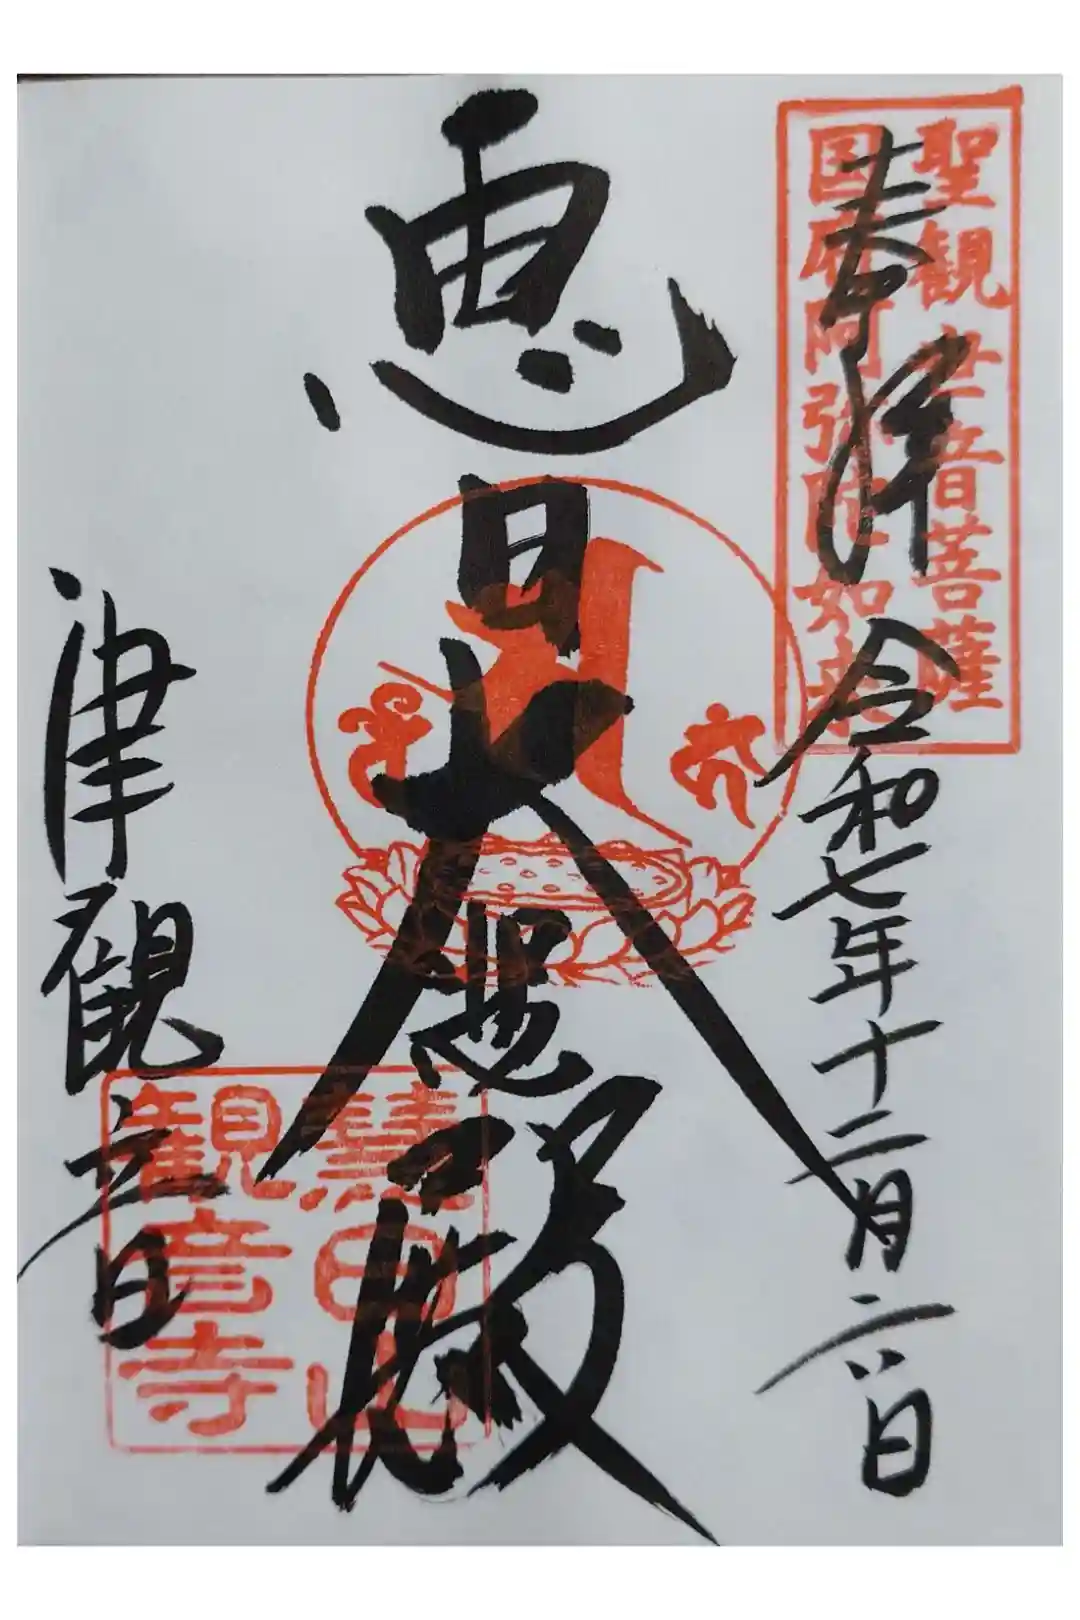 奉拝 令和七年十二月六日
聖観世音菩薩
国府阿弥陀如来
恵日大悲殿
津観音
慧日山
観音寺